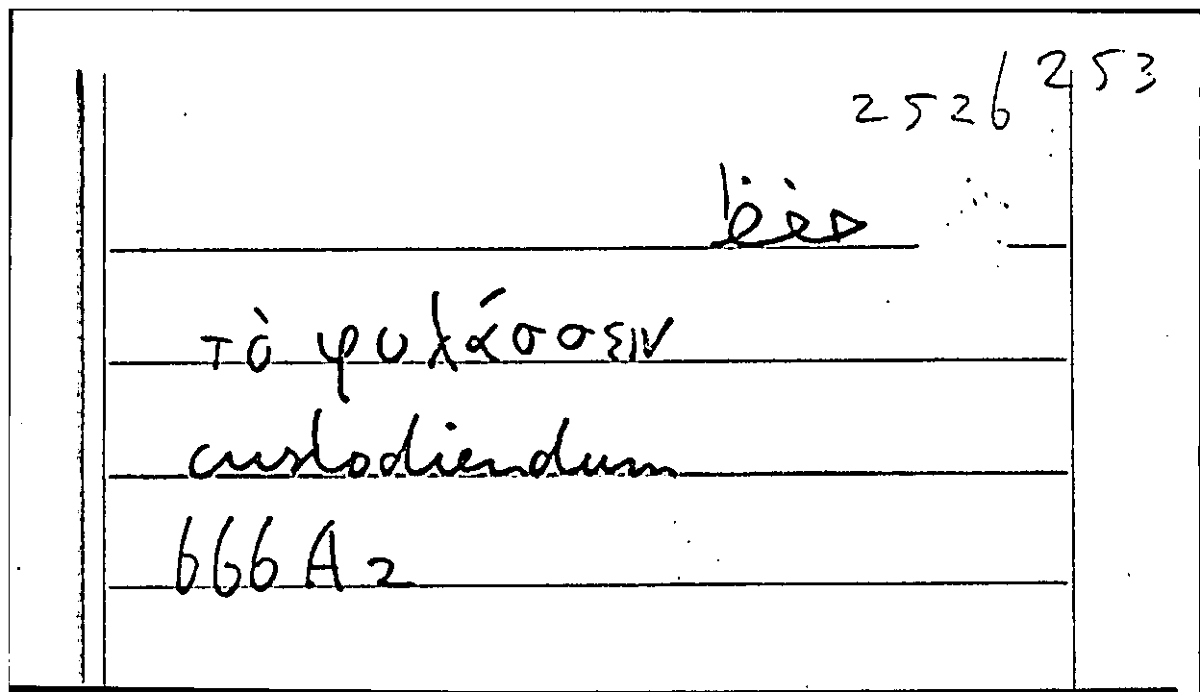 253
2526
حفظ
τὸ φυλάσσειν
custodiendum
666 A 2